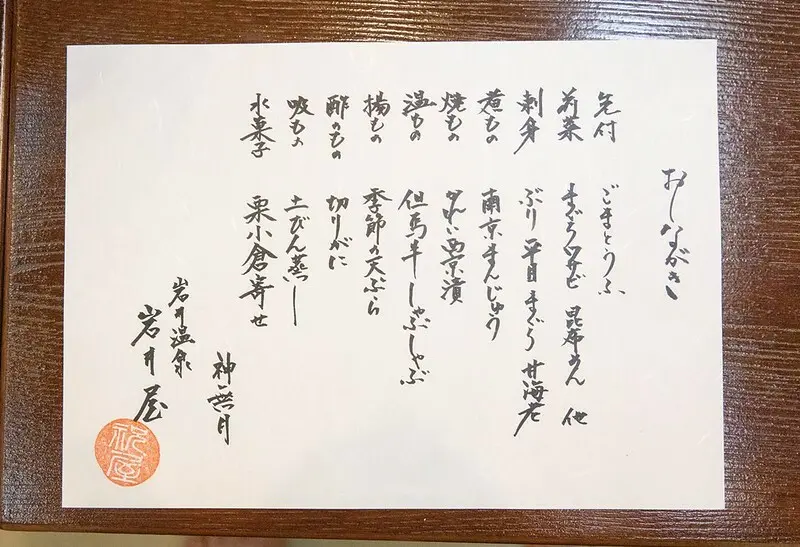 おしながき
先付 ごまとうふ
前菜 まぐろワサビ 昆布めん 他
刺身 ぶり 平目 まぐろ 甘海老
煮もの 南京まんじゅう
焼もの かれい西京漬
温もの 但馬牛しゃぶしゃぶ
揚もの 季節の天ぷら
酢のもの 切りがに
吸もの 土びん蒸し
水菓子 栗小倉寄せ
神無月
岩井温泉
岩井屋